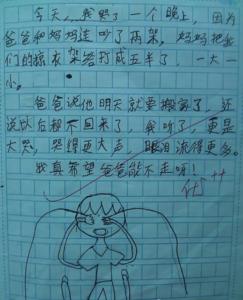 今天,我哭了一个晚上,因为
爸爸和妈妈连吵了两架。妈妈把我
们的
给打成五半了,一大一
小。
爸爸说他明天就要搬家了,还
说以后都不回来了,我听了,更是
大哭,哭得更大声,眼泪流得更多。
我真希望爸爸能不走呀!
优++